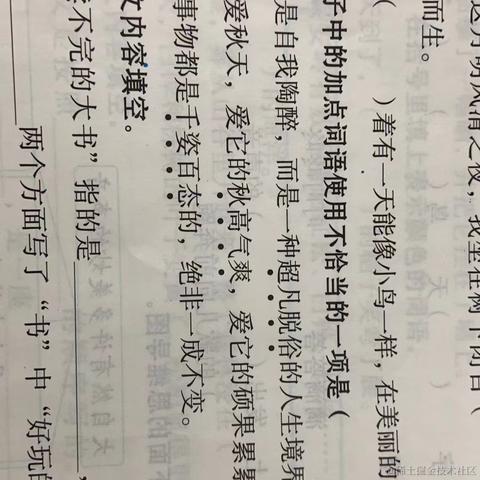 这月明风清之夜，我坐在树下闭目（
而生。
（ ）着有一天能像小鸟一样，在美丽的
子中的加点词语使用不恰当的一项是（
是自我陶醉，而是一种超凡脱俗的人生境界
爱秋天，爱它的秋高气爽，爱它的硕果累累
事物都是千姿百态的，绝非一成不变。
文内容填空。
不完的大书”指的是________，
________两个方面写了“书”中“好玩的
@稀土掘金技术社区